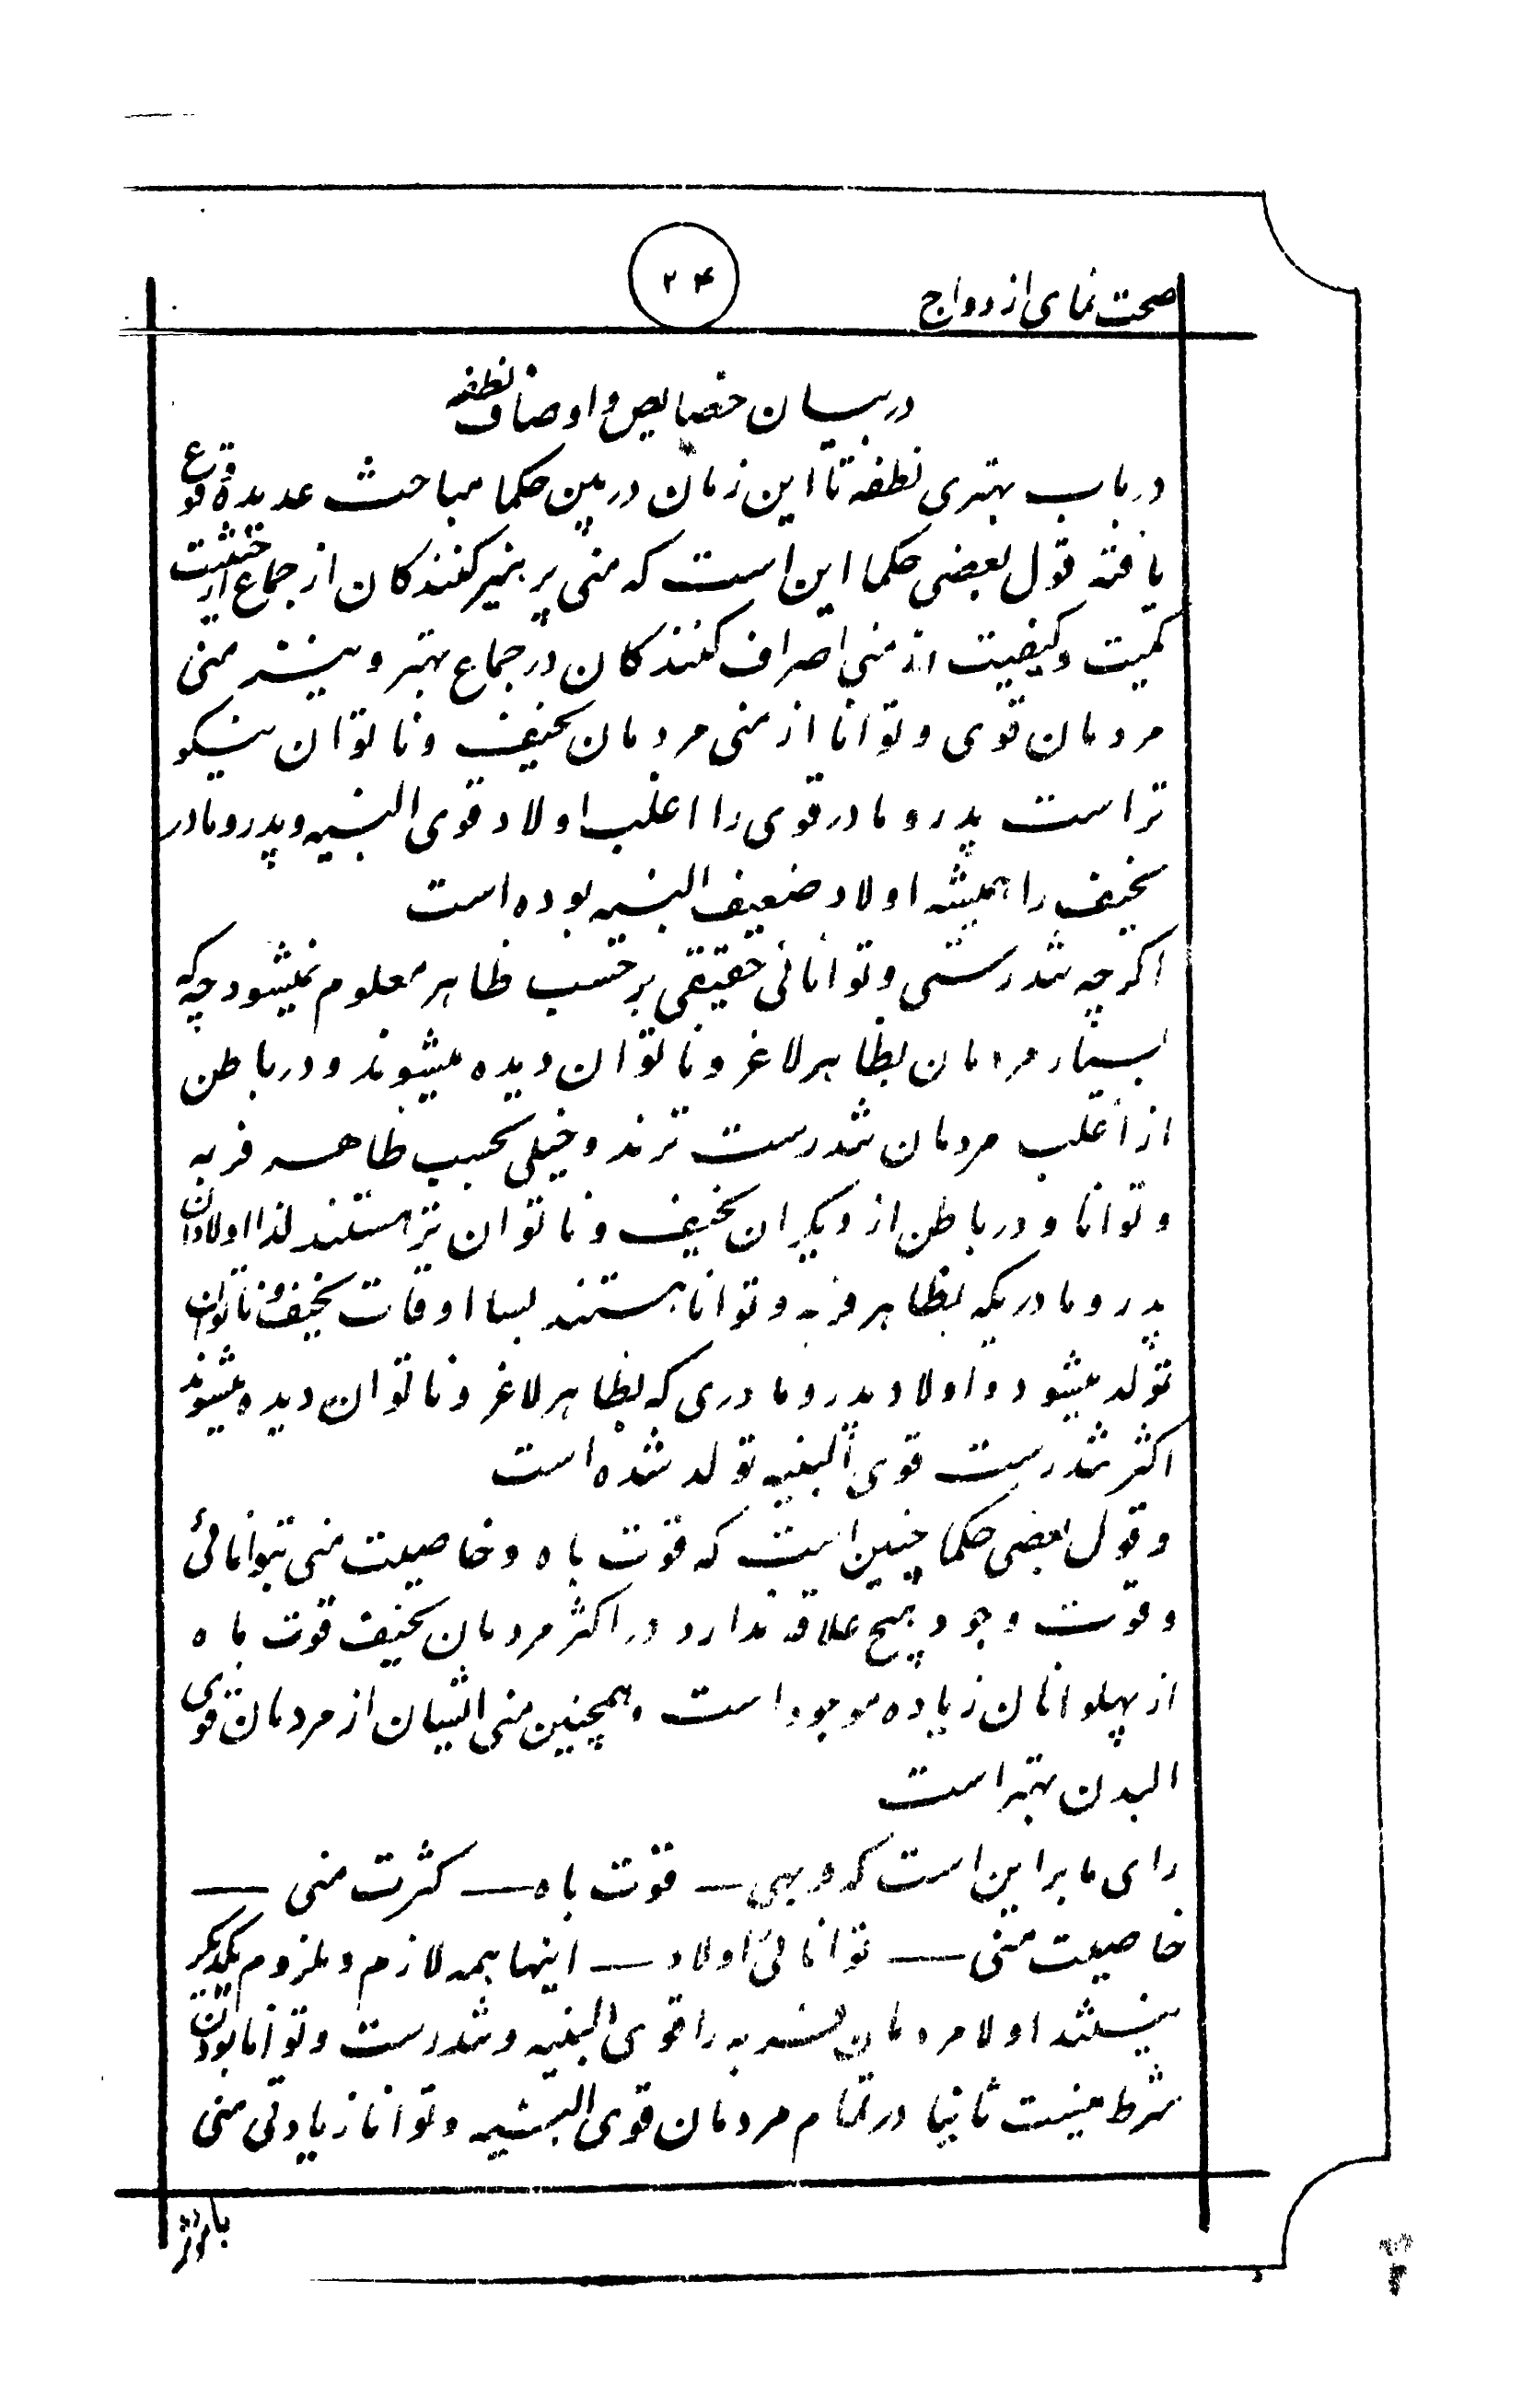 صحت نمای ازدواج
۲۴
در بیان خصایص و اوصاف نطفه
در باب بهتری نطفه تا این زمان در بین حکما مباحث عدیده وقوع
یافته قول بعضی حکما این است که منی پرهیز کنندکان از جماع از حیثیت
کمیت و کیفیت از منی اصراف کنندکان در جماع بهتر و نیز منی
مردمان قوی و توانا از منی مردمان نحیف و ناتوان نیکو
تر است پدر و مادر قوی را اغلب اولاد قوی البنیه و پدر و مادر
نحیف را همیشه اولاد ضعیف البنیه بوده است
اکرچه تندرستی و توانائی حقیقی بر حسب ظاهر معلوم نمیشود چه که
بسیار مردمان بظاهر لاغر و ناتوان دیده میشوند و در باطن
از اغلب مردمان تندرست ترند و خیلی بحسب ظاهر فربه
و توانا و در باطن از دیکران نحیف و ناتوان تر هستند لذا اولاد آن
پدر و مادریکه بظاهر فربه و توانا هستند بسا اوقات نحیف و ناتوان
تولد میشود و اولاد پدر و مادری که بظاهر لاغر و ناتوان دیده میشوند
اکثر تندرست قوی البنیه تولد شده است
و قول بعضی حکما چنین است که قوت باه و خاصیت منی بتوانائی
و قوت وجود هیچ علاقه ندارد در اکثر مردمان نحیف قوت باه
از پهلوانان زیاده موجود است و همچنین منی ایشان از مردمان قوی
البدن بهتر است
رای ما بر این است که فربهی — قوت باه — کثرت منی —
خاصیت منی — توانائی اولاد — اینها همه لازم و ملزوم یکدیکر
نیستند اولا مردمان فربه را قوی البنیه و تندرست و توانا بودن
شرط نیست ثانیا در تمام مردمان قوی البنیه و توانا زیادتی منی